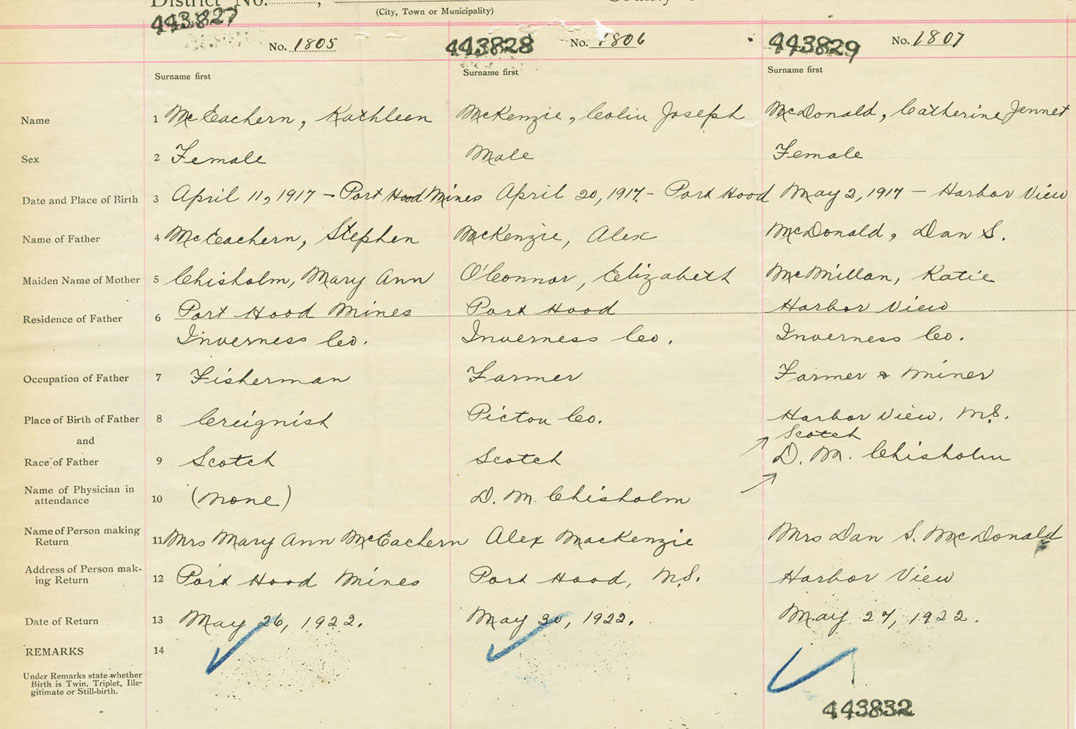 District No. ........,
(City, Town or Municipality)
443827 443828 443829
No. 1805 No. 1806 No. 1807
Surname first Surname first Surname first
Name 1 McEachern, Kathleen McKenzie, Colin Joseph McDonald, Catherine Jennet
Sex 2 Female Male Female
Date and Place of Birth 3 April 11, 1917 - Port Hood Mines April 20, 1917 - Port Hood May 2, 1917 - Harbor View
Name of Father 4 McEachern, Stephen McKenzie, Alex McDonald, Dan S.
Maiden Name of Mother 5 Chisholm, Mary Ann O'Connor, Elizabeth McMillan, Katie
Residence of Father 6 Port Hood Mines Port Hood Harbor View
Inverness Co. Inverness Co. Inverness Co.
Occupation of Father 7 Fisherman Farmer Farmer & Miner
Place of Birth of Father 8 Creignish Pictou Co. Harbor View, N.S.
and Scotch
Race of Father 9 Scotch Scotch D. M. Chisholm
Name of Physician in
attendance 10 (none) D. M. Chisholm
Name of Person making
Return 11 Mrs Mary Ann McEachern Alex MacKenzie Mrs Dan S. McDonald
Address of Person mak-
ing Return 12 Port Hood Mines Port Hood, N.S. Harbor View
Date of Return 13 May 26, 1922. May 30, 1922. May 27, 1922.
REMARKS 14
Under Remarks state whether
Birth is Twin, Triplet, Ille-
gitimate or Still-birth.
443832